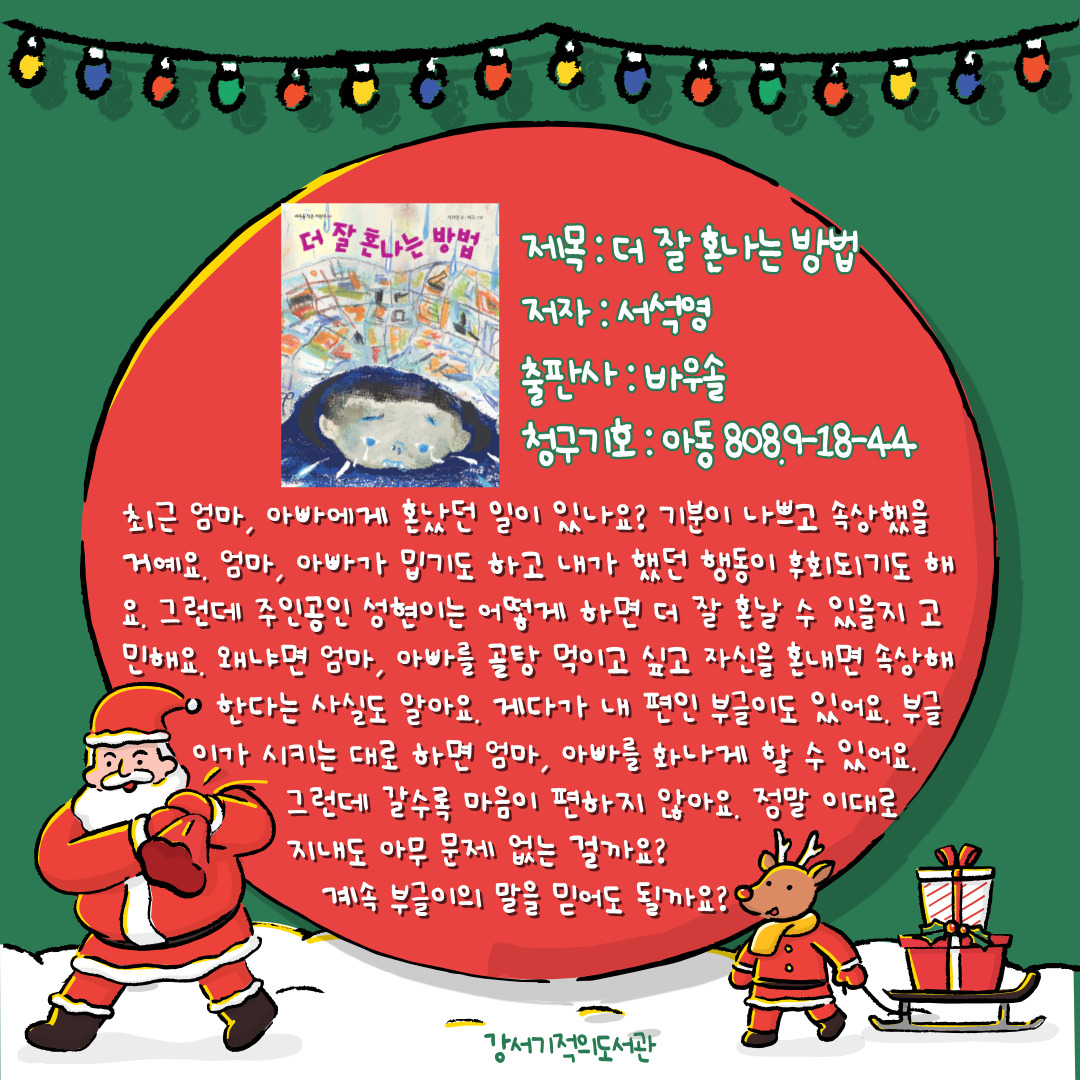 더 잘 혼나는 방법
제목 : 더 잘 혼나는 방법
저자 : 서석영
출판사 : 바우솔
청구기호 : 아동 808.9-18-44
최근 엄마, 아빠에게 혼났던 일이 있나요? 기분이 나쁘고 속상했을
거예요. 엄마, 아빠가 밉기도 하고 내가 했던 행동이 후회되기도 해
요. 그런데 주인공인 성현이는 어떻게 하면 더 잘 혼날 수 있을지 고
민해요. 왜냐면 엄마, 아빠를 골탕 먹이고 싶고 자신을 혼내면 속상해
한다는 사실도 알아요. 게다가 내 편인 부글이도 있어요. 부글
이가 시키는 대로 하면 엄마, 아빠를 화나게 할 수 있어요.
그런데 갈수록 마음이 편하지 않아요. 정말 이대로
지내도 아무 문제 없는 걸까요?
계속 부글이의 말을 믿어도 될까요?
강서기적의도서관